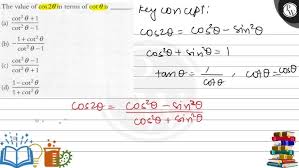 The value of cos2θ in terms of cotθ is ______
(a) cot²θ + 1 / cot²θ − 1
(b) 1 + cot²θ / cot²θ − 1
(c) cot²θ − 1 / cot²θ + 1
(d) 1 − cot²θ / 1 + cot²θ
Key concept:
cos2θ = cos²θ − sin²θ
cos²θ + sin²θ = 1
tanθ = 1 / cotθ , cotθ = cosθ
cos2θ = cos²θ − sin²θ / cos²θ + sin²θ